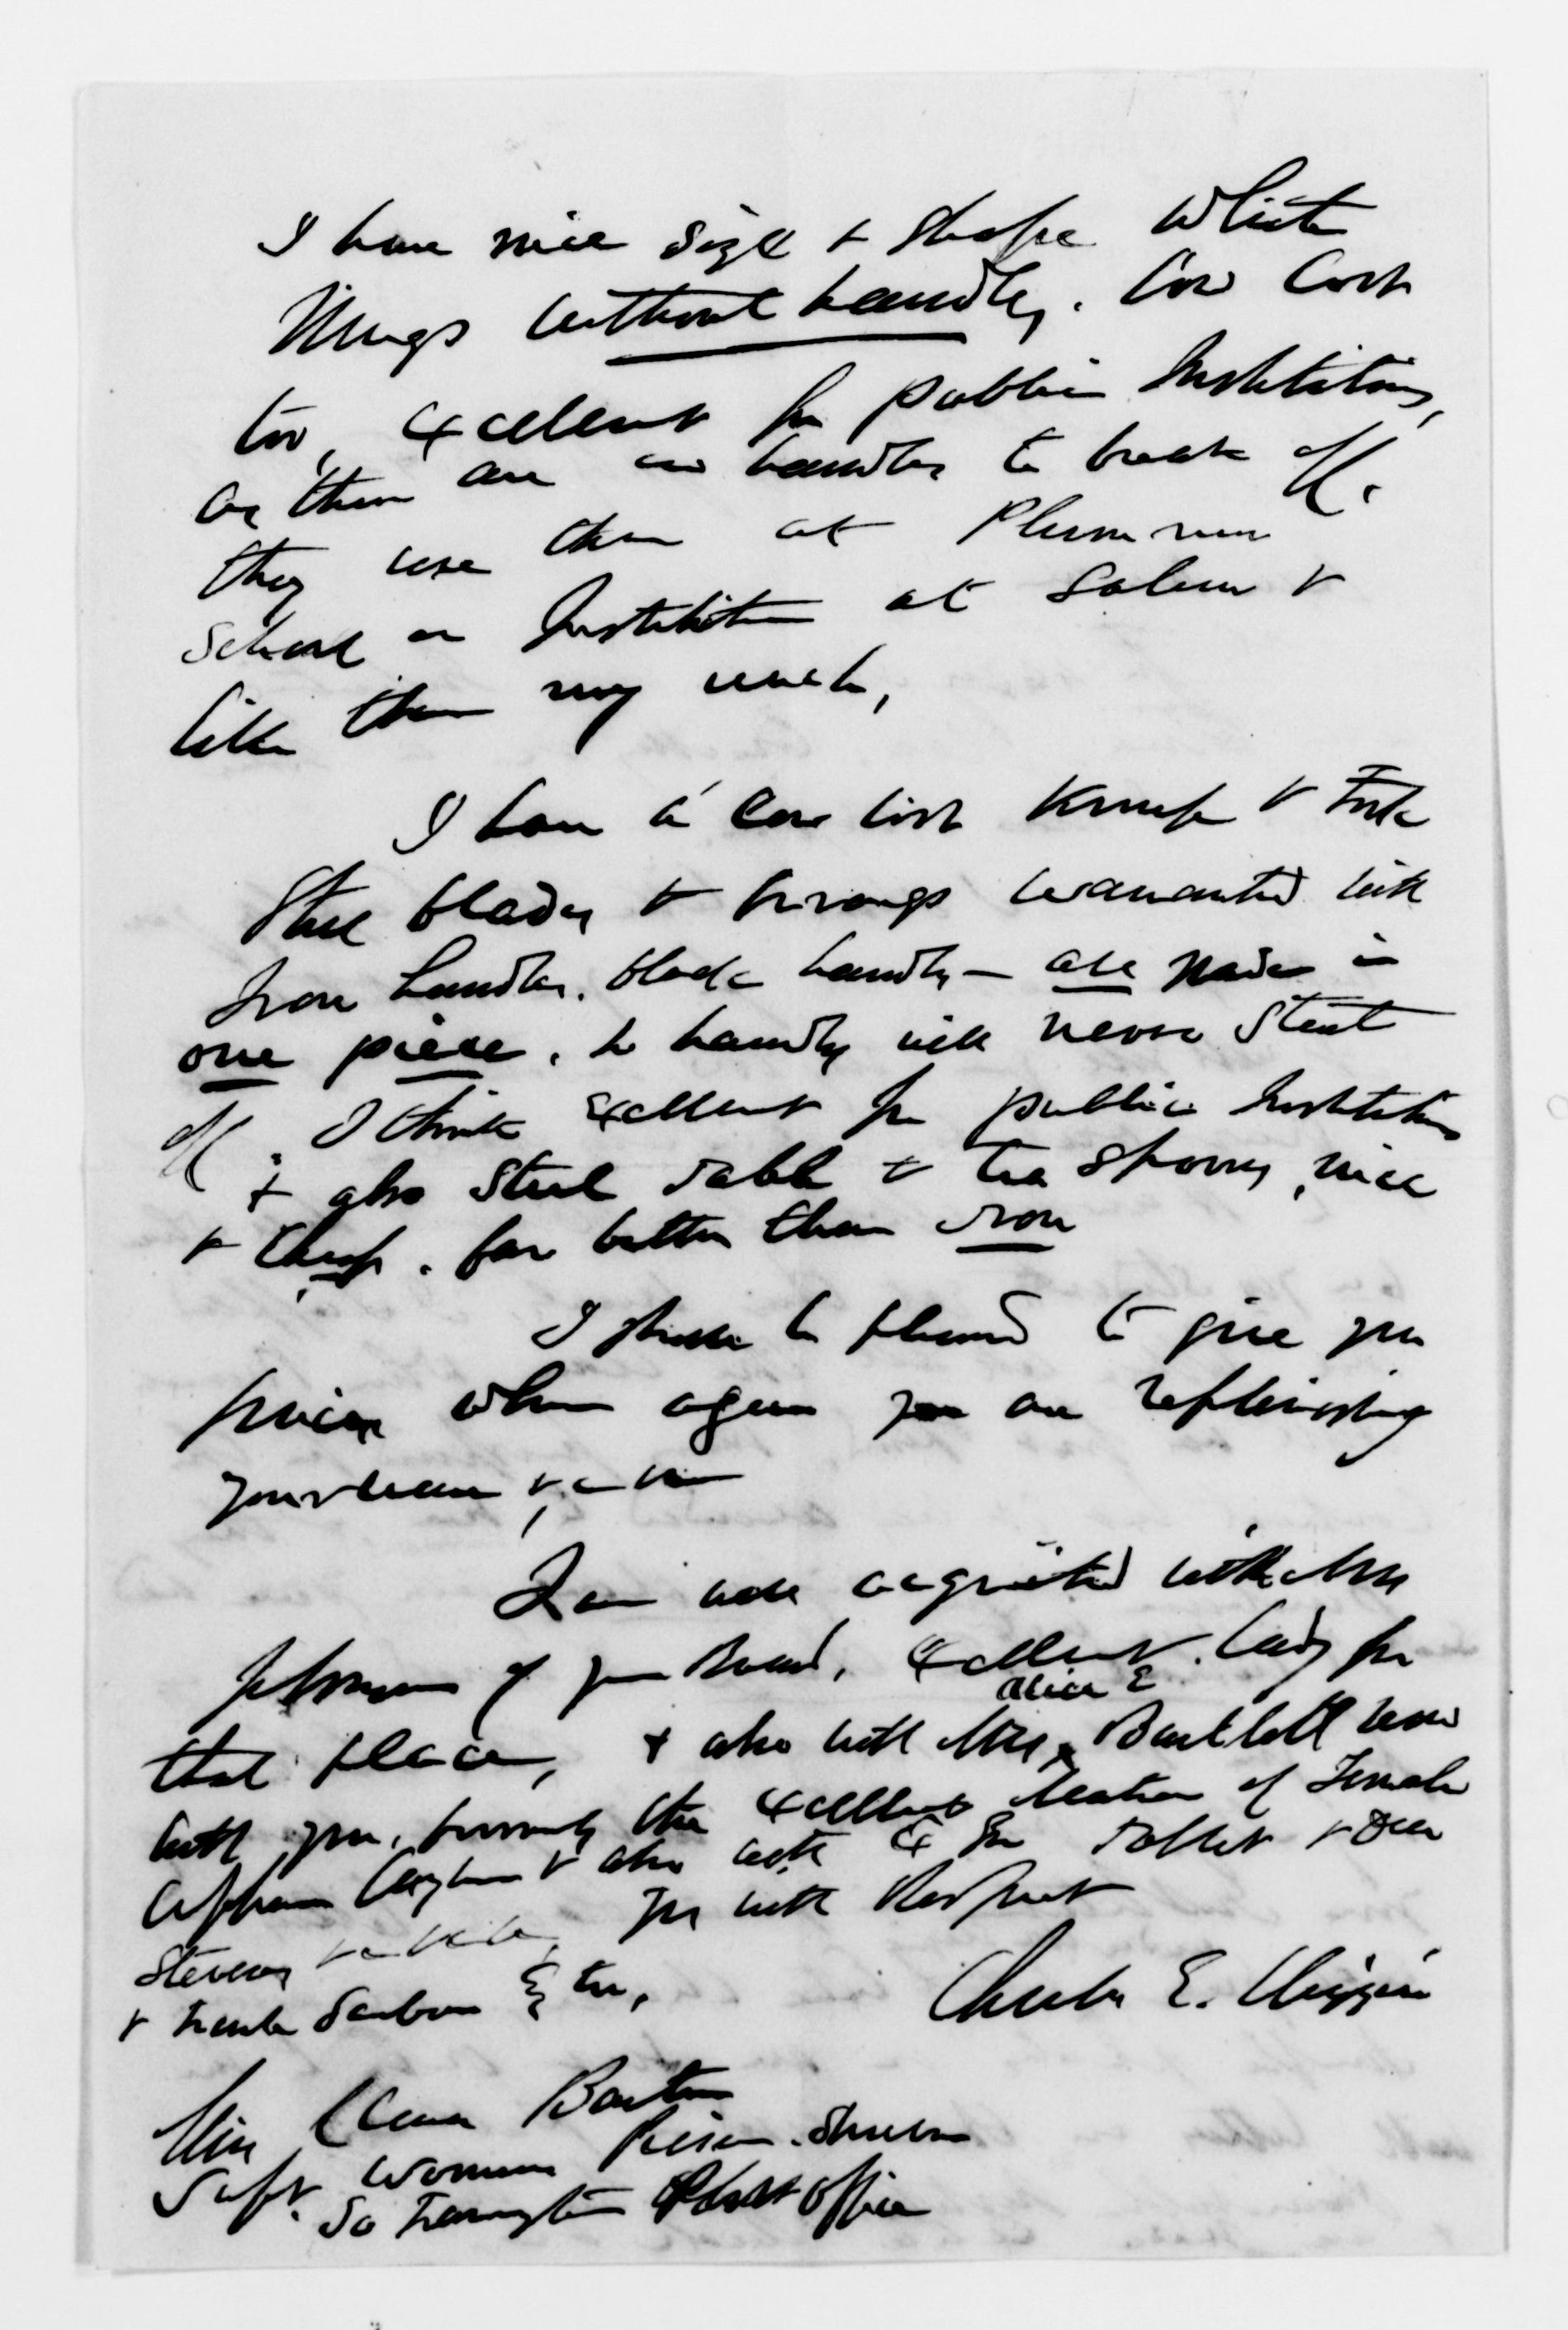 I have nice size & shape white
Mugs without handles, low cost
too, excellent for public Institutions,
as there are no handles to break off.
they use them at Plummer
School or Institution at Salem &
like them very much,
I have a low cost Knife & Fork
Steel blades & prongs warranted with
Iron handles. black handles – all made in
one piece, so handles will never start
off. I think excellent for public Institutions
& also Steel table & tea spoons, nice
& cheap. far better than iron
I should be pleased to give you
prices when again you are replenishing
your
I am well acquainted with Mrs
Johnson of your Board, excellent Lady for
that place, & also with Miss Alice E Bartlett now
with you, formerly the excellent Matron of Female
Orphan Asylum & also with Tollet &
Stevens
& Frank Sanborn too,
Yrs with Respect
Charles E. Wiggin
Miss Clara Barton
Supt. Womans Prison. Sherborn
So Framingham Post Office